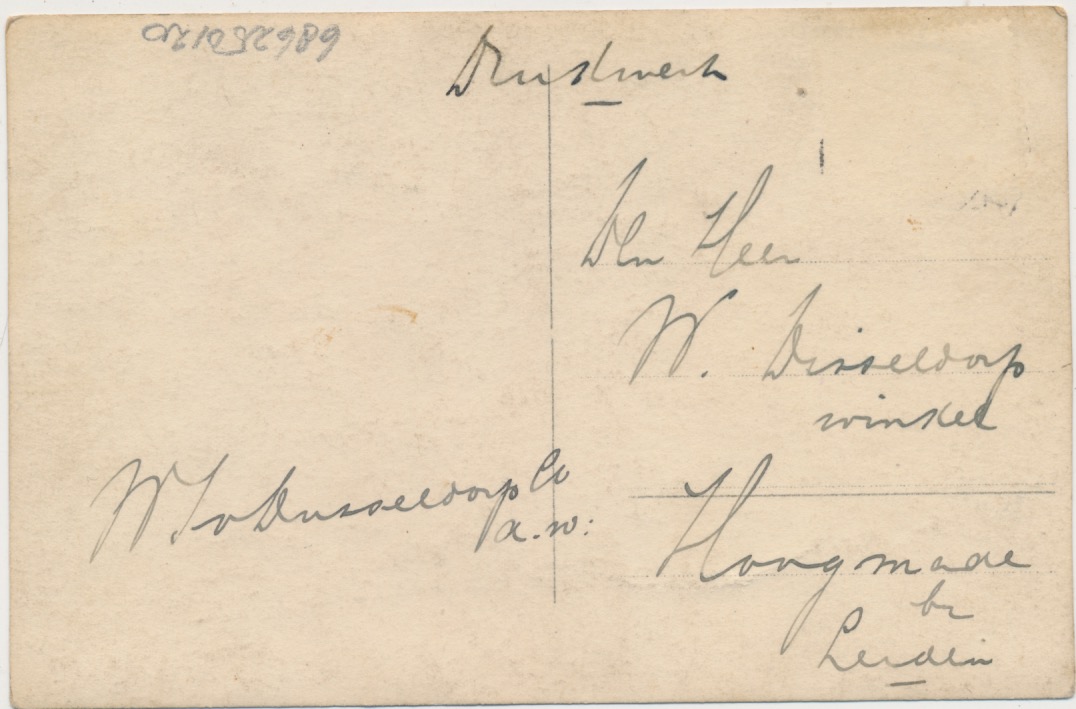 6862250120
Drukwerk
Den Heer
W. Disseldorp
winkel
Hoogmade
br
Leiden
W. J. v Dusseldorp Co
a.w: